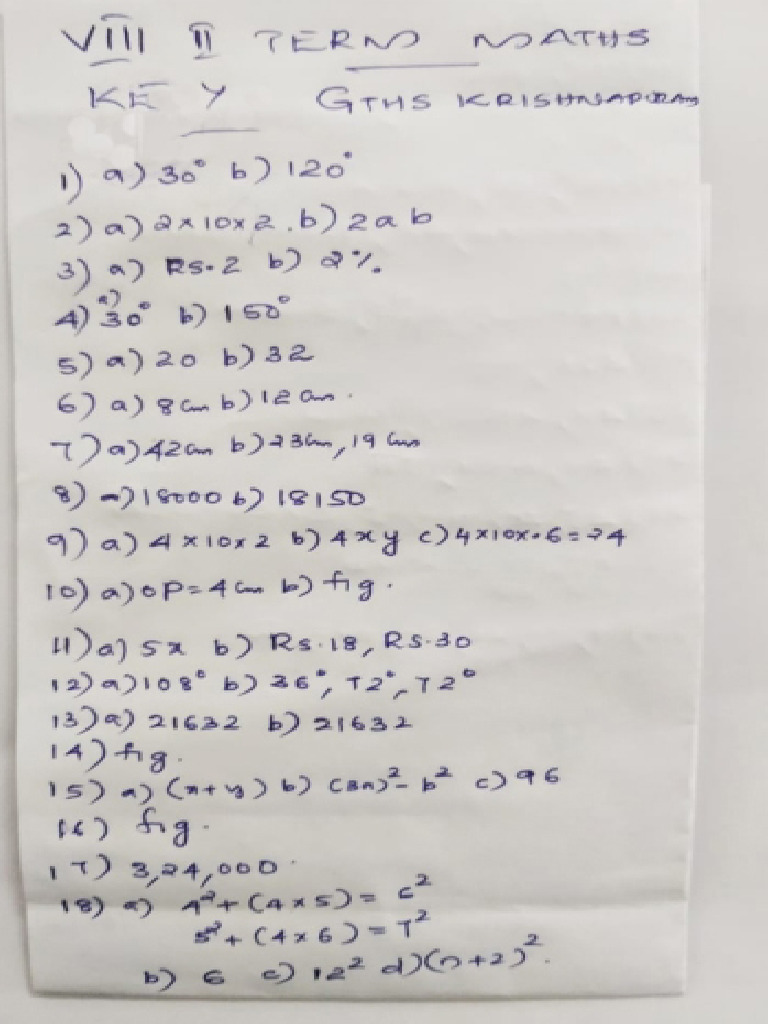 VIII II TERM MATHS
KEY GTHS KRISHNAPURAM
1) a) 30° b) 120°
2) a) 2x10x2. b) 2ab
3) a) RS.2 b) 2%.
4) a) 30° b) 150°
5) a) 20 b) 32
6) a) 8cm b) 12cm.
7) a) 42cm b) 23cm, 19cm
8) a) 18000 b) 18150
9) a) 4x10x2 b) 4xy c) 4x10x.6=24
10) a) OP=4cm b) fig.
11) a) 5x b) RS.18, RS.30
12) a) 108° b) 36°, 72°, 72°
13) a) 21632 b) 21632
14) fig.
15) a) (x+y) b) (3a)²-b² c) 96
16) fig.
17) 3,24,000
18) a) 4²+(4x5)=6²
5²+(4x6)=7²
b) 6 c) 12² d) (n+2)².